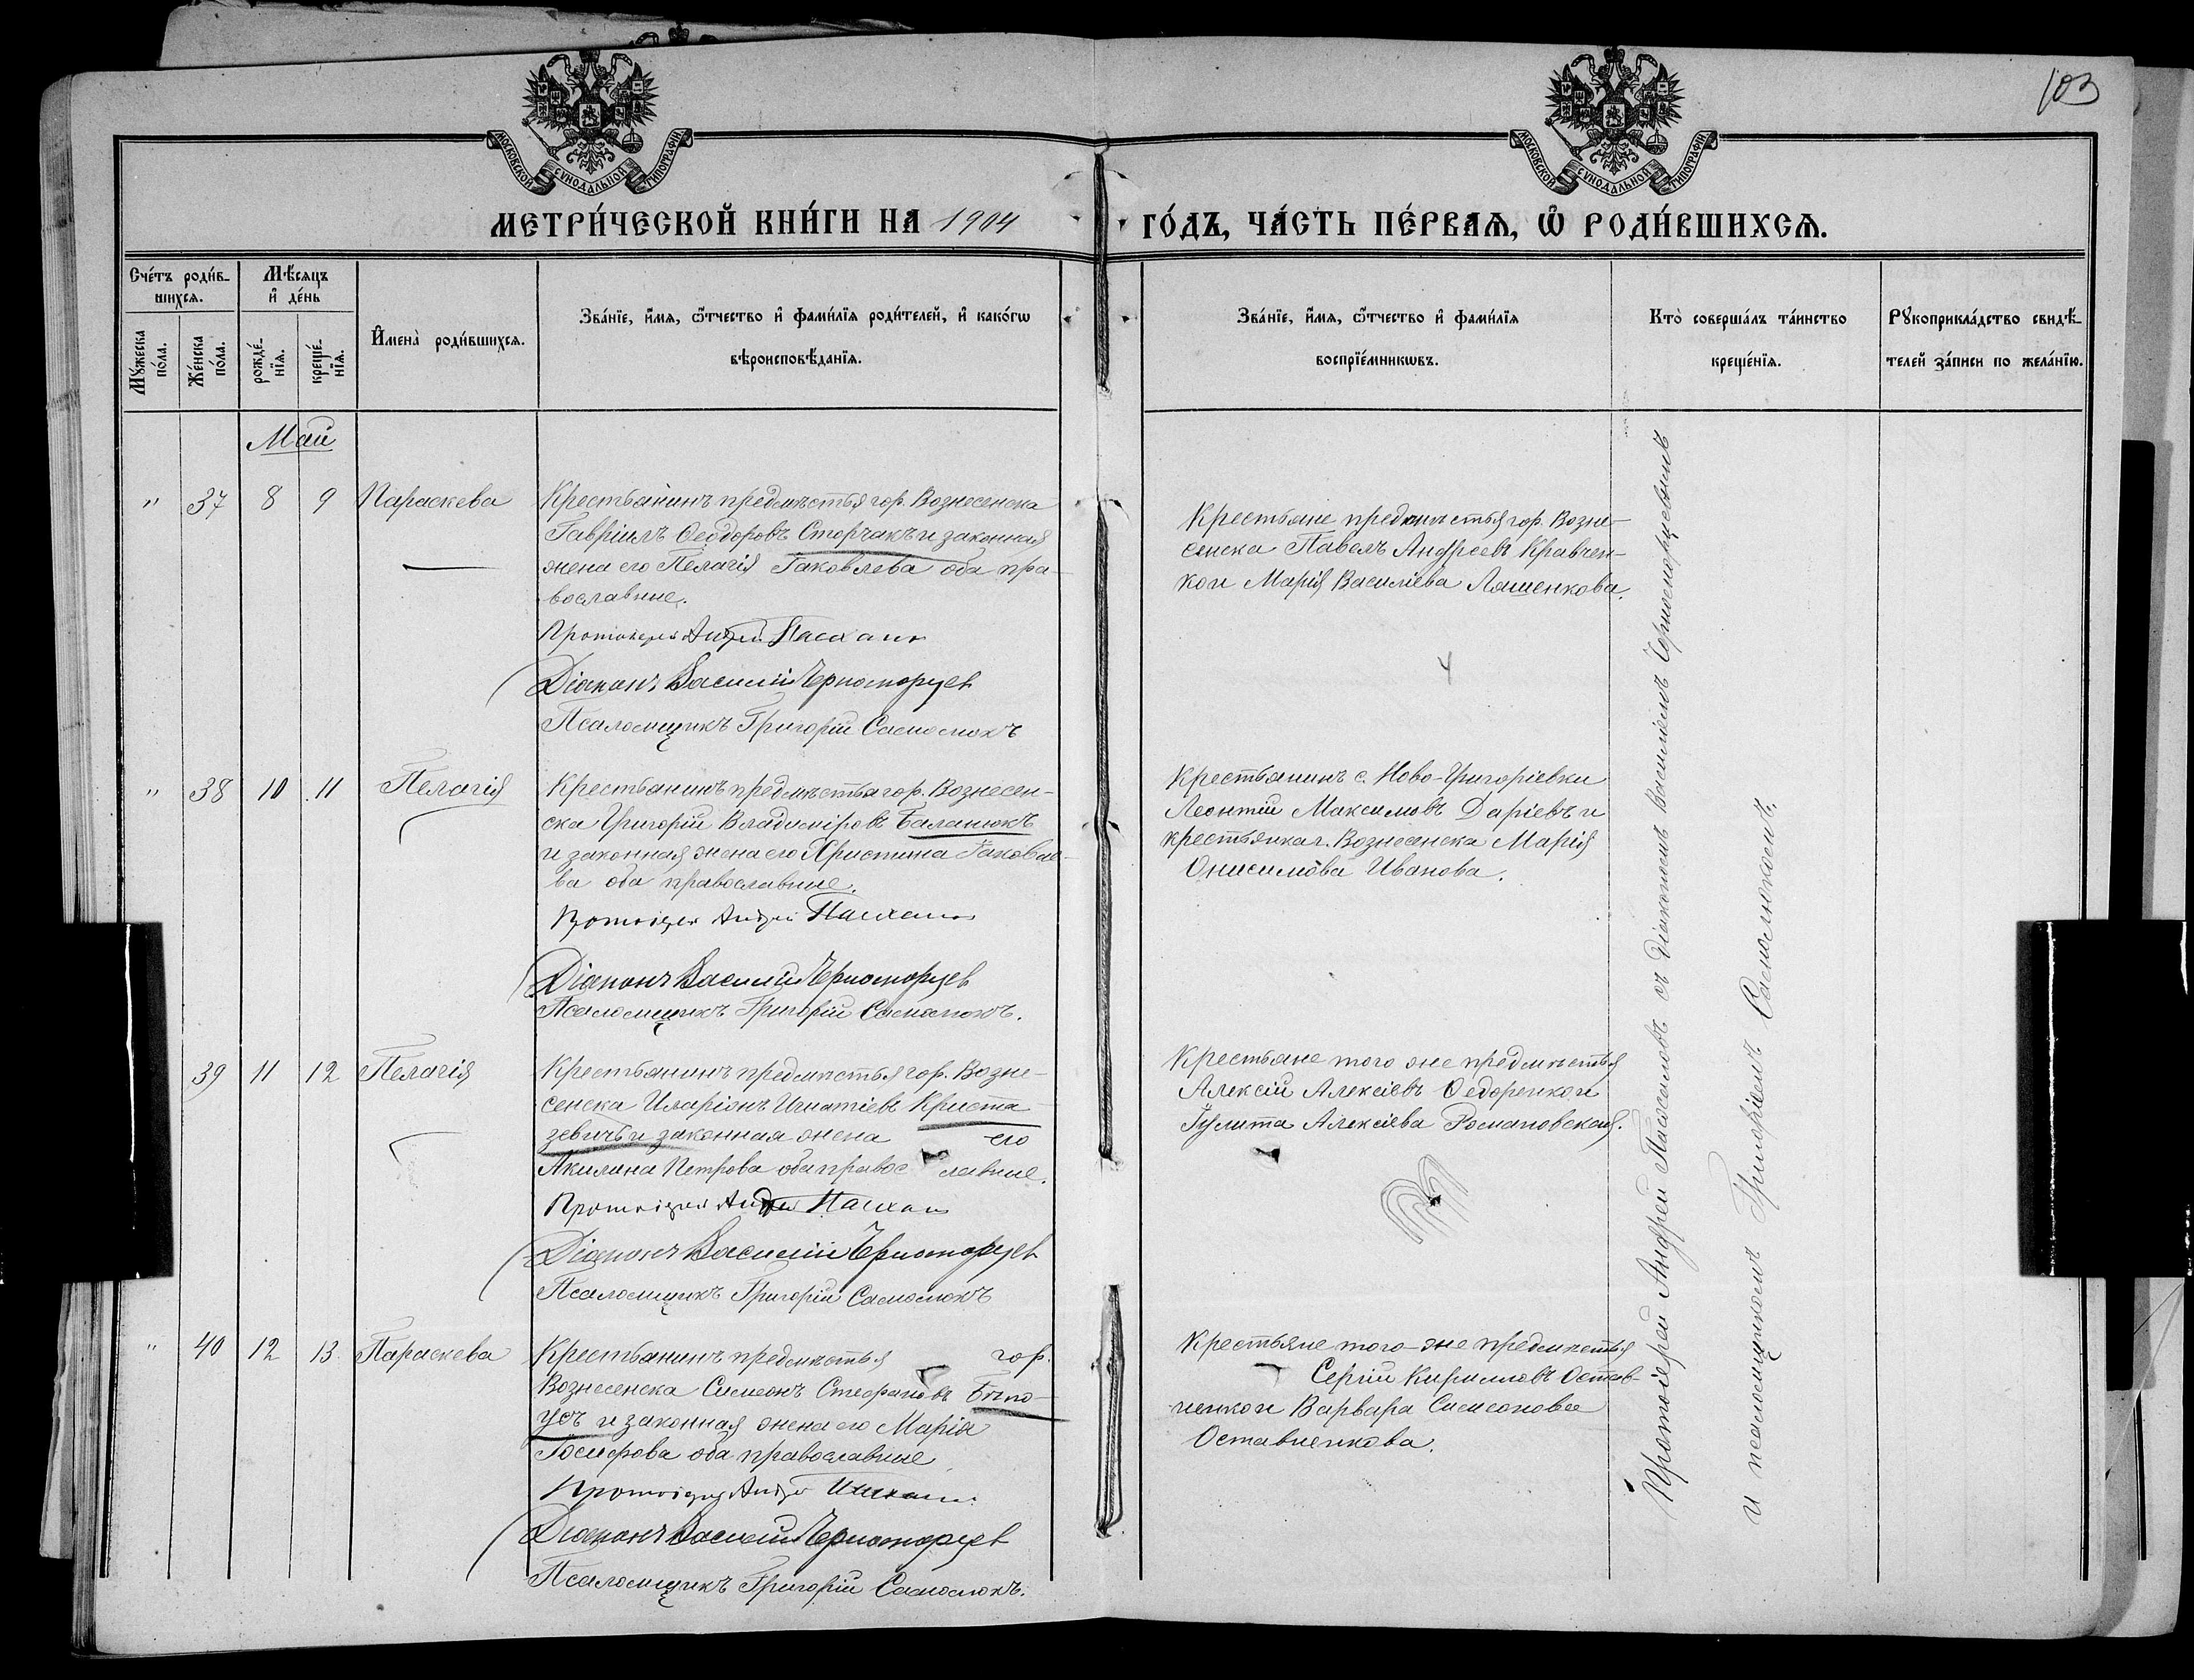 103
МОСКОВСКОЙ СУНОДАЛЬНОЙ ТИПОГРАФІИ
МОСКОВСКОЙ СУНОДАЛЬНОЙ ТИПОГРАФІИ
МЕТРИ́ЧЕСКОЙ КНИ́ГИ НА 1904 ГО́ДЪ, ЧА́СТЬ ПЕ́РВАѦ, Ѽ РОДИ́ВШИХСѦ.
Сче́тъ роди́в-
шихсѧ.
Мꙋ́жеска по́ла.
Же́нска по́ла.
Мѣ́сѧцъ
и҆ де́нь
рожде́-
нїѧ.
креще́-
нїѧ.
И҆мена̀ роди́вшихсѧ.
Зва́нїе, и҆́мѧ, ѻ҆́тчество и҆ фами́лїѧ роди́телей, и҆ како́гѡ
вѣроисповѣ́данїѧ.
Зва́нїе, и҆́мѧ, ѻ҆́тчество и҆ фами́лїѧ
воспрїе́мникѡвъ.
Кто̀ соверша́лъ та́инство
креще́нїѧ.
Рꙋкоприкла́дство свидѣ́-
телей за́писи по жела́нїю.
Май
" 37 8 9 Параскева
Крестьянинъ предмѣстья гор. Вознесенска
Гавріилъ Ѳеодоровъ Сторчакъ и законная
жена его Пелагія Іаковлева оба пра-
вославные.
Протоіерей Андрей
Діаконъ Василій Черноморцев
Псаломщикъ Григорій Самолюкъ
Крестьяне предмѣстья гор. Возне-
сенска Павелъ Андреевъ Кравчен-
ко и Марія Василіева Ляшенкова.
4
" 38 10 11 Пелагія
Крестьянинъ предмѣстья гор. Вознесен-
ска Григорій Владиміровъ Баланюкъ
и законная жена его Христина Іаковле-
ва оба православные.
Протоіерей Андрей
Діаконъ Василій Черноморцев
Псаломщикъ Григорій Самолюкъ.
Крестьянинъ с. Ново-Григоріевки
Леонтій Максимовъ Даріевъ и
крестьянка г. Вознесенска Марія
Онисимова Иванова.
39 11 12 Пелагія
Крестьянинъ предмѣстья гор. Возне-
сенска Иларіонъ Игнатіевъ Криста
зевичъ и законная жена его
Акилина Петрова оба правос лавные.
Протоіерей Андрей
Діаконъ Василій Черноморцев
Псаломщикъ Григорій Самолюкъ
Крестьяне того же предмѣстья
Алексій Алексіевъ Ѳедоренко и
Іулитта Алексіева Романовская.
" 40 12 13 Параскева
Крестьянинъ предмѣстья гор.
Вознесенска Симеонъ Стефановъ Бѣло-
усъ и законная жена его Марія
Іосифова оба православные
Протоіерей Андрей
Діаконъ Василій Черноморцев
Псаломщикъ Григорій Самолюкъ.
Крестьяне того-же предмѣстья
Сергій Кирилловъ Остав-
ненко и Варвара Симеонова
Оставненкова.
Протоіерей Андрей съ діакономъ Василіемъ Черноморцевымъ
и псаломщикомъ Григоріемъ Самолюкомъ.